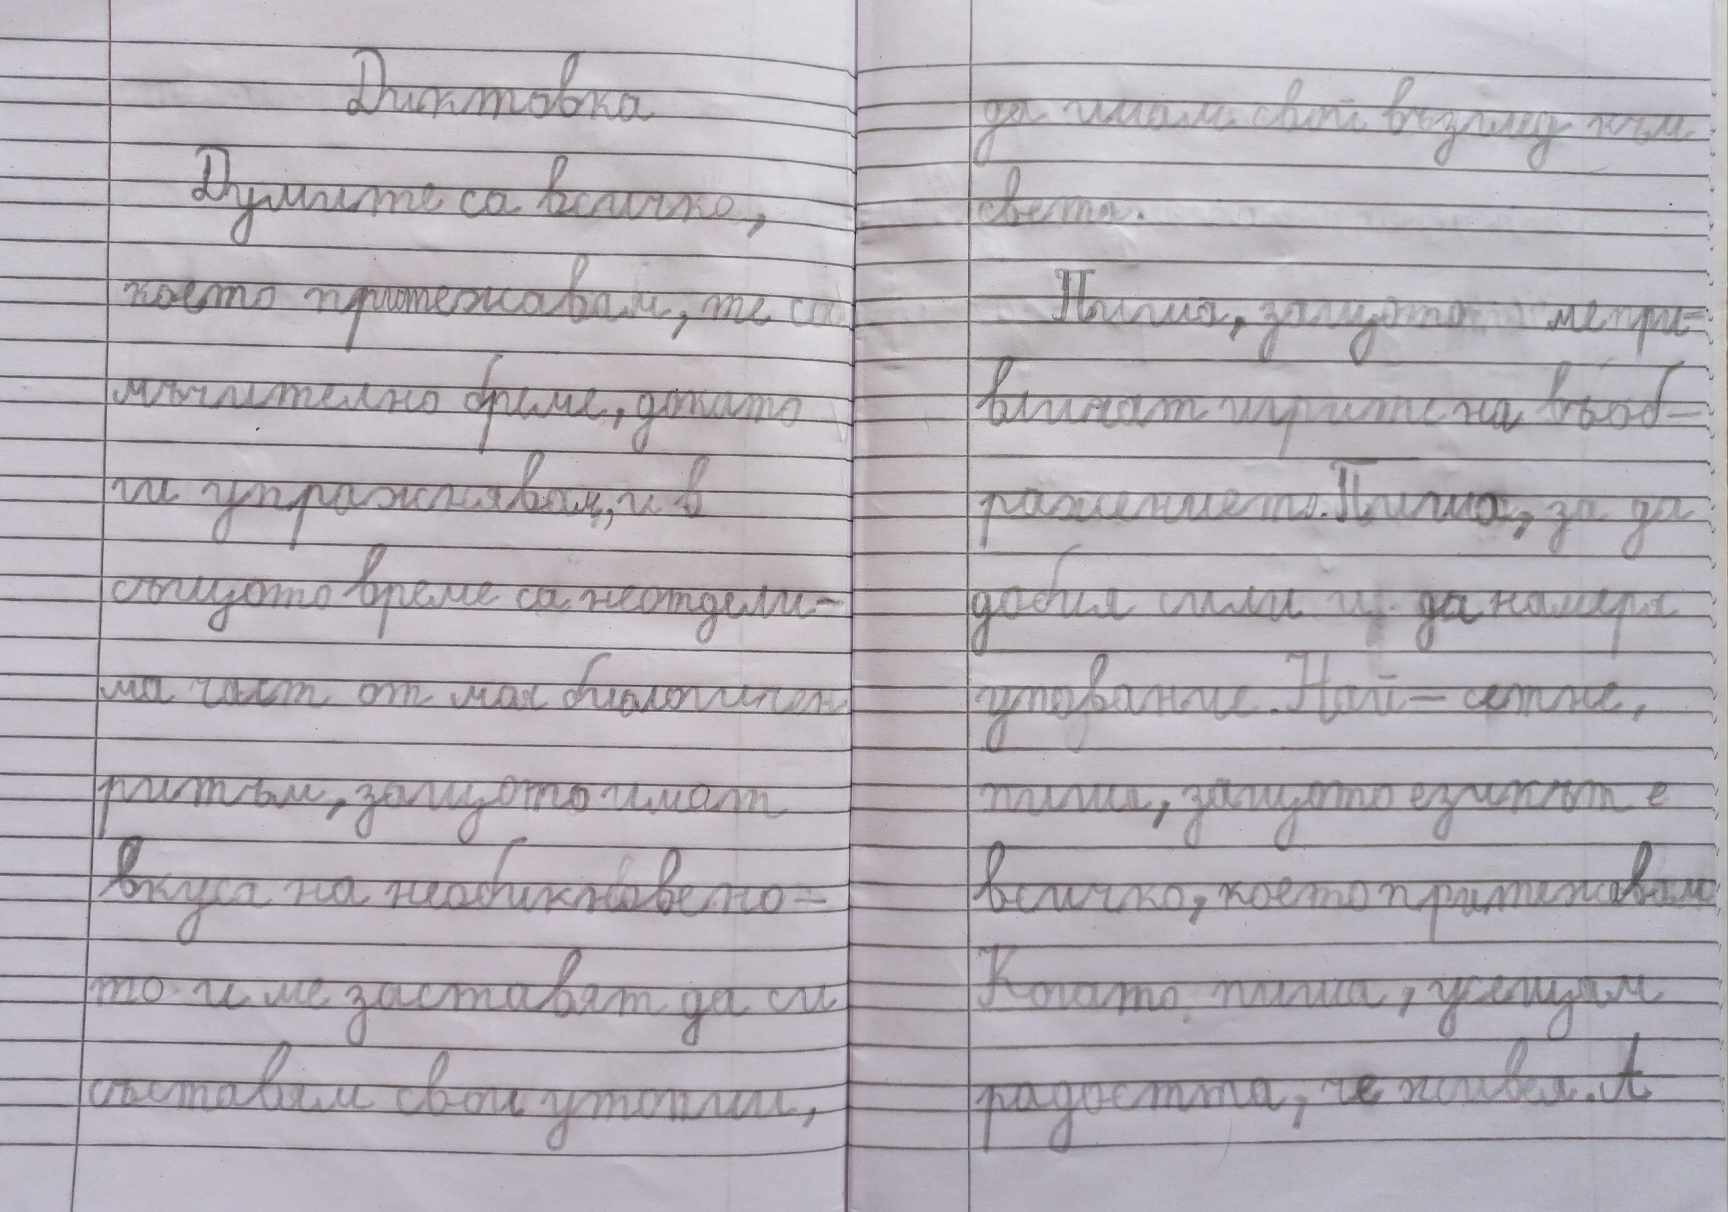 Диктовка
Думите са всичко,
което притежавам, те са
мъчително бреме, докато
ги упражнявам, и в
същото време са неотдели-
ма част от моя биологичен
ритъм, защото имат
вкуса на необикновено-
то и ме заставят да си
съставям свои утопии,
да имам свой възглед към
света.
Пиша, защото ме при-
вличат игрите на въоб-
ражението. Пиша, за да
добия сили и да намеря
упование. Най-сетне,
пиша, защото езикът е
всичко, което притежавам
Когато пиша, усещам
радостта, че живея. А